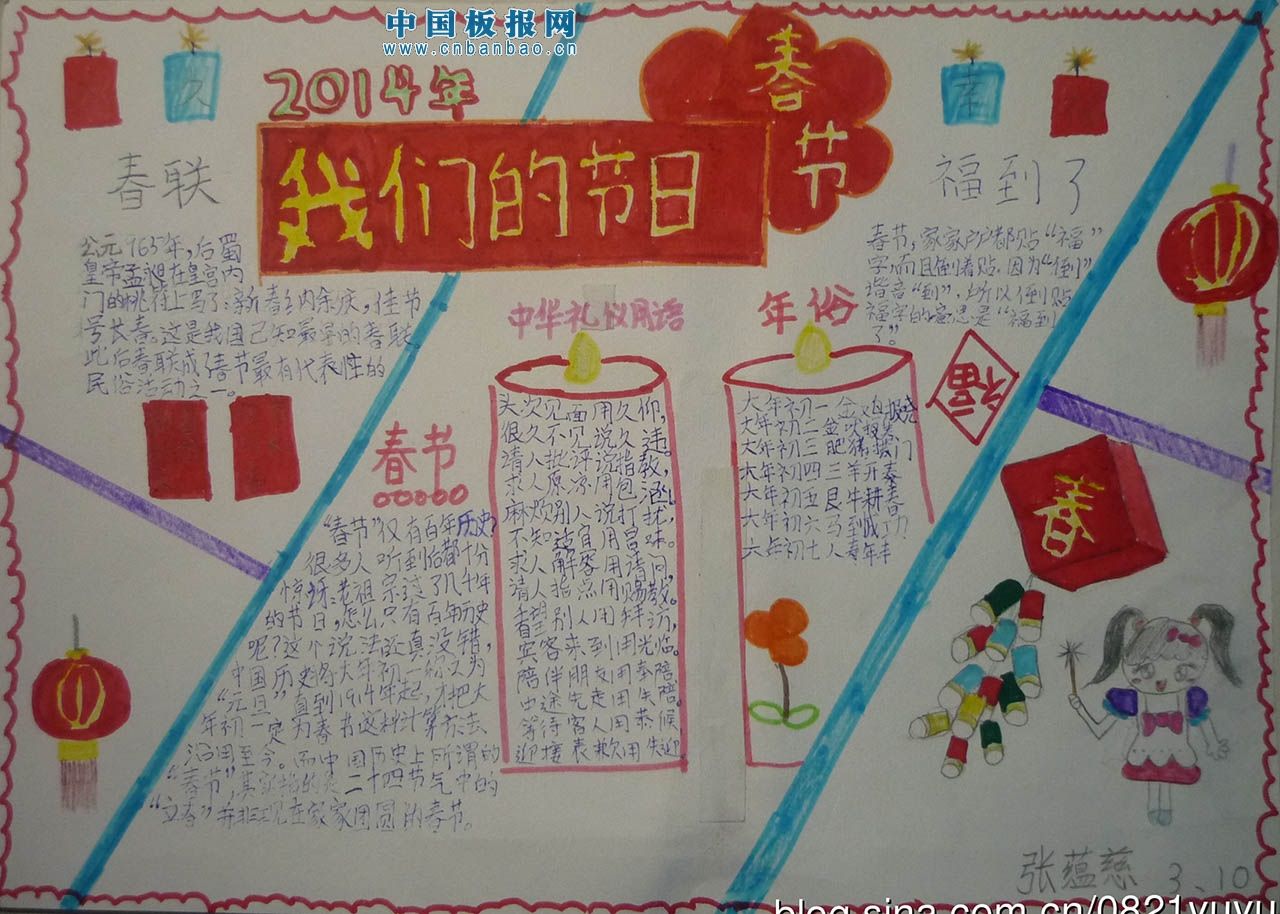 中国板报网
www.cnbanbao.cn
2014年
我们的节日
春节
久
幸
春联
公元965年,后蜀
皇帝孟昶在皇宫内
门的桃符上写了:新春纳余庆,佳节
号长春。这是我国已知最早的春联。
此后春联成了春节最有代表性的
民俗活动之一。
福到了
春节,家家户户都贴“福”
字,而且倒着贴。因为“倒”
谐音“到”,所以倒贴
福字的意思是“福到
了”。
福
春
春节
“春节”仅有百年历史?
很多人听到后都十分
惊讶:老祖宗过了几千年
的节日,怎么只有百年历史
呢?这个说法还真没错,
中国历史将大年初一称之为
“元旦”直到1914年起,才把大
年初一定为春节这种计算方法
沿用至今。而中国历史上所谓的
“春节”,其实指的是二十四节气中的
“立春”并非现在家家团圆的春节。
中华礼仪用语
头次见面用久仰,
很久不见说久违。
请人批评说指教,
求人原凉用包涵。
麻烦别人说打扰,
不知适宜用冒昧。
求人解答用请问,
请人指点用赐教。
看望别人用拜访,
宾客来到用光临。
陪伴朋友用奉陪
中途先走用失陪。
等待客人用恭候
迎接表歉用失迎
年俗
大年初一金鸡报晓
大年初二金吠报
大年初三肥猪拱门
大年初四三羊开泰
大年初五艮牛耕春
大年初六马到成功
大年初七人寿年丰
张蕴慈 3.10
blog.sina.com.cn/0821yuyu